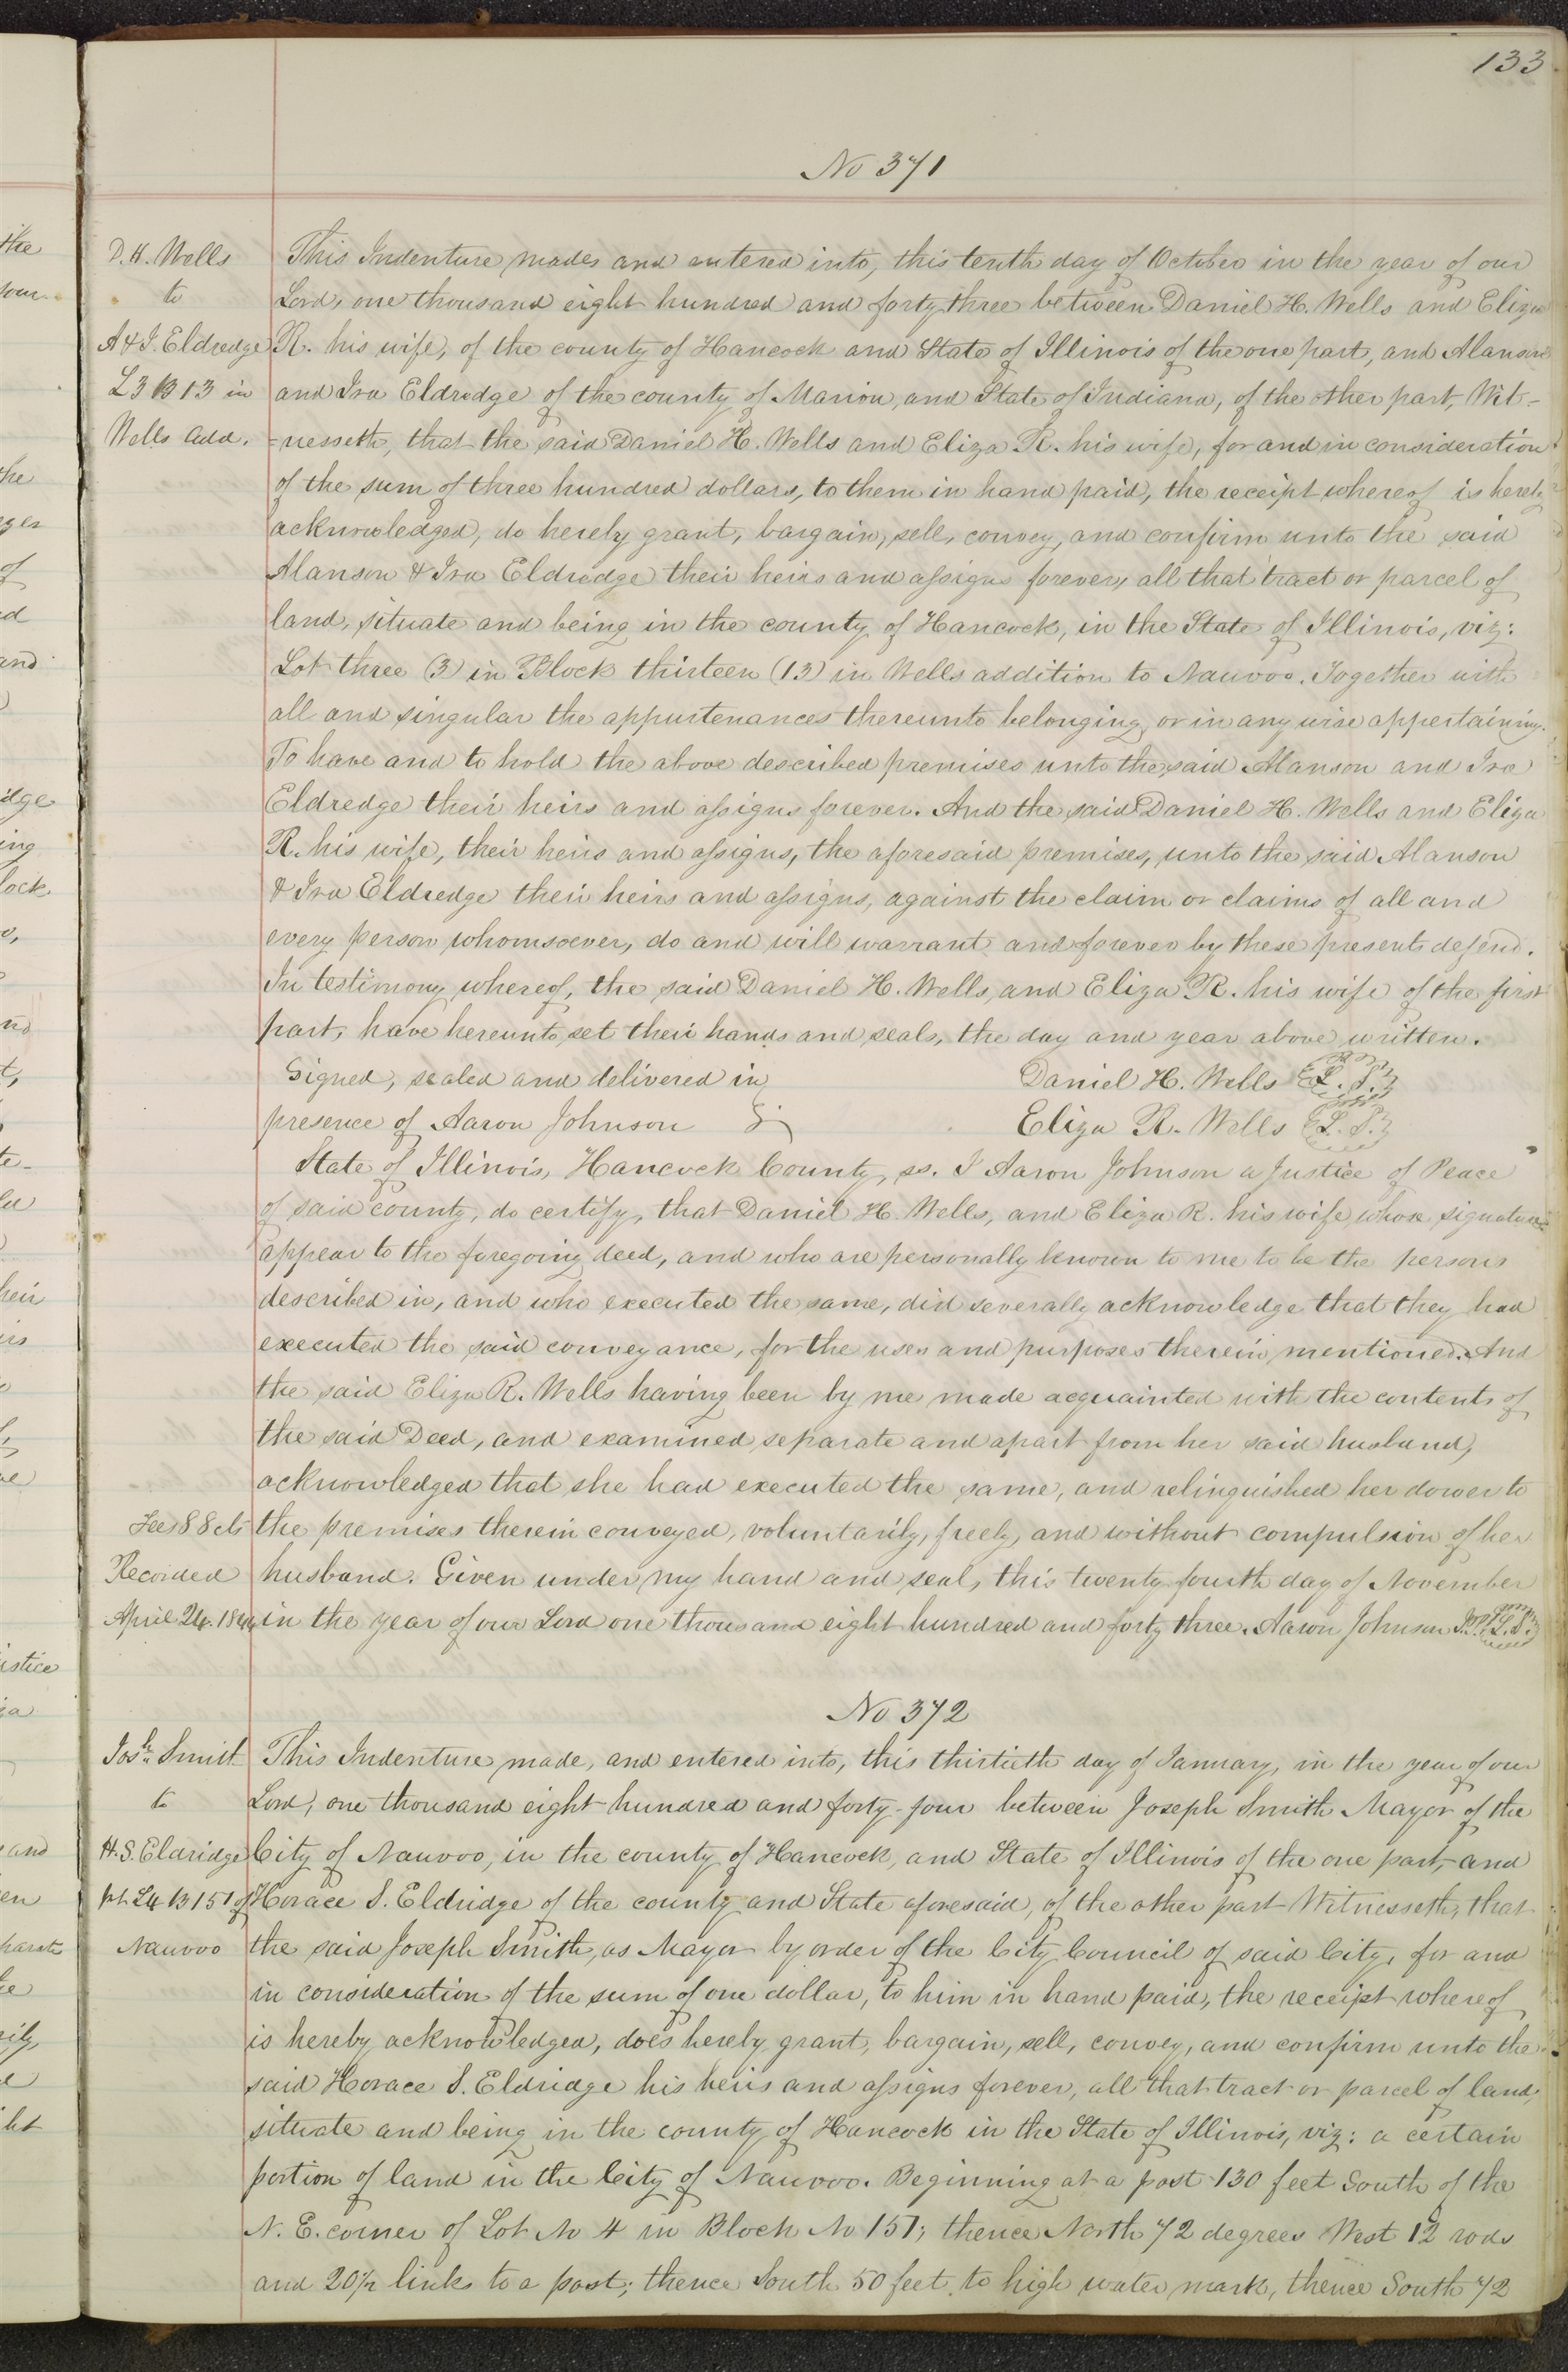 133
No 371
D. H. Wells
to
A & I. Eldredge
L 3 B 13 in
Wells Add.
This Indenture made, and entered into, this tenth day of October in the year of our
Lord, one thousand eight hundred and forty three between Daniel H. Wells and Eliza
R. his wife, of the county of Hancock and State of Illinois of the one part, and Alanson
and Ira Eldredge of the county of Marion, and State of Indiana, of the other part, Wit-
=nesseth, that the said Daniel H. Wells and Eliza R. his wife, for and in consideration
of the sum of three hundred dollars, to them in hand paid, the receipt whereof is hereby
acknowledged, do hereby grant, bargain, sell, convey, and confirm unto the said
Alanson & Ira Eldredge their heirs and assigns forever, all that tract or parcel of
land, situate and being in the county of Hancock, in the State of Illinois, viz:
Lot three (3) in Block thirteen (13) in Wells addition to Nauvoo. Together with
all and singular the appurtenances thereunto belonging, or in any wise appertaining.
To have and to hold the above described premises unto the said Alanson and Ira
Eldredge their heirs and assigns forever. And the said Daniel H. Wells and Eliza
R. his wife, their heirs and assigns, the aforesaid premises, unto the said Alanson
& Ira Eldredge their heirs and assigns, against the claim or claims of all and
every person whomsoever, do and will warrant and forever by these presents defend.
In testimony whereof, the said Daniel H. Wells, and Eliza R. his wife of the first
part, have hereunto set their hands and seals, the day and year above written.
Signed, sealed and delivered in
presence of Aaron Johnson
Daniel H. Wells L. S.
Eliza R. Wells L. S.
State of Illinois, Hancock County, ss. I Aaron Johnson a Justice of Peace
of said county, do certify, that Daniel H. Wells, and Eliza R. his wife whose signatures
appear to the foregoing deed, and who are personally known to me to be the persons
described in, and who executed the same, did severally acknowledge that they had
executed the said conveyance, for the uses and purposes therein mentioned. And
the said Eliza R. Wells having been by me made acquainted with the contents of
the said Deed, and examined separate and apart from her said husband,
acknowledged that she had executed the same, and relinquished her dower to
the premises therein conveyed, voluntarily, freely, and without compulsion of her
husband. Given under my hand and seal, this twenty fourth day of November
in the year of our Lord one thousand eight hundred and forty three. Aaron Johnson J.P. L.S.
Fees 88 cts
Recorded
April 24. 1844
No 372
Josh. Smith
to
H. S. Eldridge
pt. L 4 B 151 of
Nauvoo
This Indenture made, and entered into, this thirtieth day of January, in the year of our
Lord, one thousand eight hundred and forty-four between Joseph Smith Mayor of the
City of Nauvoo, in the county of Hancock, and State of Illinois of the one part, and
Horace S. Eldridge of the county and State aforesaid, of the other part Witnesseth, that
the said Joseph Smith, as Mayor by order of the City Council of said City, for and
in consideration of the sum of one dollar, to him in hand paid, the receipt whereof
is hereby acknowledged, does hereby grant, bargain, sell, convey, and confirm unto the
said Horace S. Eldridge his heirs and assigns forever, all that tract or parcel of land,
situate and being in the county of Hancock in the State of Illinois, viz: a certain
portion of land in the City of Nauvoo. Beginning at a post 130 feet South of the
N. E. corner of Lot No 4 in Block No 151; thence North 72 degrees West 12 rods
and 20½ links to a post; thence South 50 feet, to high water mark, thence South 72